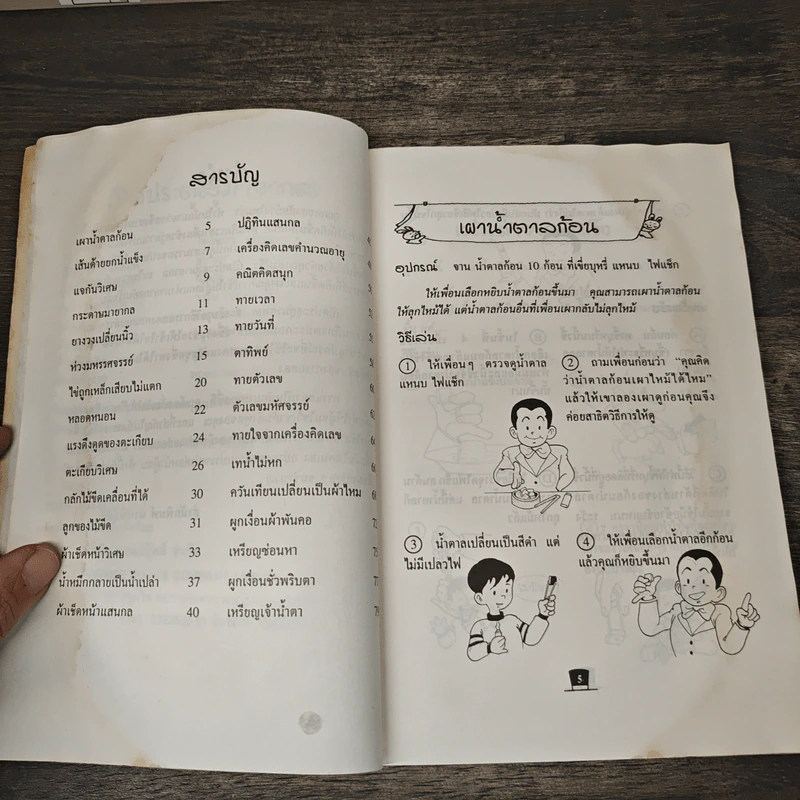 สารบัญ
เผาน้ำตาลก้อน 5
เส้นด้ายยกน้ำแข็ง 7
แจกันวิเศษ 9
กระดาษมายากล 11
ยางวงเปลี่ยนนิ้ว 13
ห่วงมหรรศจรรย์ 15
ไข่ถูกเหล็กเสียบไม่แตก 20
หลอดหนอน 22
แรงดึงดูดของตะเกียบ 24
ตะเกียบวิเศษ 26
กลักไม้ขีดเคลื่อนที่ได้ 30
ลูกของไม้ขีด 31
ผ้าเช็ดหน้าวิเศษ 33
น้ำหมึกกลายเป็นน้ำเปล่า 37
ผ้าเช็ดหน้าแสนกล 40
ปฏิทินแสนกล
เครื่องคิดเลขคำนวณอายุ
คณิตคิดสนุก
ทายเวลา
ทายวันที่
ตาทิพย์
ทายตัวเลข
ตัวเลขมหัศจรรย์
ทายใจจากเครื่องคิดเลข
เทน้ำไม่หก
ควันเทียนเปลี่ยนเป็นผ้าไหม
ผูกเงื่อนผ้าพันคอ
เหรียญซ่อนหา
ผูกเงื่อนชั่วพริบตา
เหรียญเจ้าน้ำตา
เผาน้ำตาลก้อน
อุปกรณ์ จาน น้ำตาลก้อน 10 ก้อน ที่เขี่ยบุหรี่ แหนบ ไฟแช็ก
ให้เพื่อนเลือกหยิบน้ำตาลก้อนขึ้นมา คุณสามารถเผาน้ำตาลก้อน
ให้ลุกไหม้ได้ แต่น้ำตาลก้อนอื่นที่เพื่อนเผากลับไม่ลุกไหม้
วิธีเล่น
1 ให้เพื่อนๆ ตรวจดูน้ำตาล
แหนบ ไฟแช็ก
2 ถามเพื่อนก่อนว่า “คุณคิด
ว่าน้ำตาลก้อนเผาไหม้ได้ไหม”
แล้วให้เขาลองเผาดูก่อนคุณจึง
ค่อยสาธิตวิธีการให้ดู
3 น้ำตาลเปลี่ยนเป็นสีดำ แต่
ไม่มีเปลวไฟ
4 ให้เพื่อนเลือกน้ำตาลอีกก้อน
แล้วคุณก็หยิบขึ้นมา
5